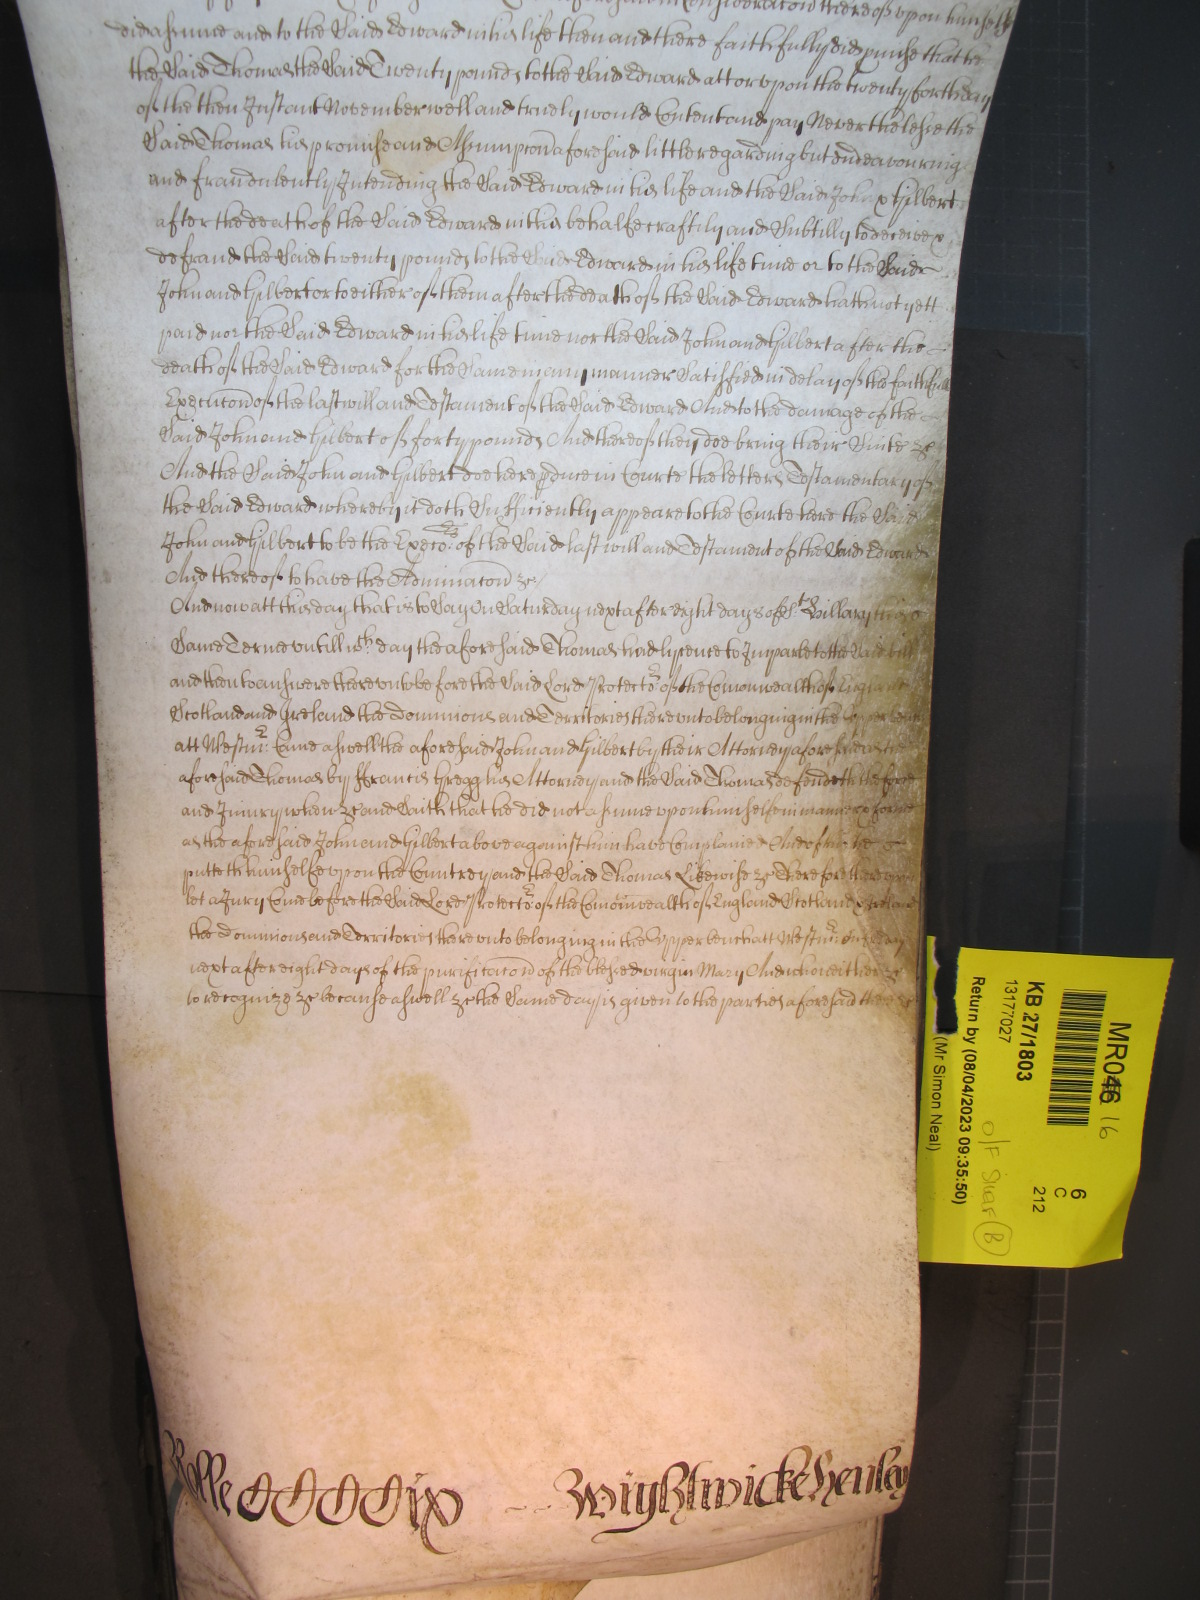 did assume and to the Said Edward in his life then and there faithfully did pmise that he
the Said Thomas the Said Twenty pounds to the Said Edward att or upon the twenty forth day
of the then Instant November well and truely would Content and pay Neverthelesse the
Said Thomas his promise and Assumpcon aforesaid little regarding but Endeavouring
and fraudulently Intending the Said Edward in his life and the Said John & Gilbert
after the death of the Said Edward in this behalfe craftily and Subtilly to deceive &
defraud the Said twenty pounds to the Said Edward in his life time or to the Said
John and Gilbert or to either of them after the death of the Said Edward hath not yett
paid nor the Said Edward in his life time nor the Said John and Gilbert after the
death of the Said Edward for the Same in any manner Satisfied in delay of the faithfull
Execucon of the last will and Testament of the Said Edward And to the damage of the
Said John and Gilbert of forty pounds And thereof they doe bring their Suite &c
And the Said John and Gilbert doe here pduce in Courte the letters Testamentary of
the Said Edward whereby it doth Sufficiently appeare to the Courte here the Said
John and Gilbert to be the Execrs of the Said last will and Testament of the Said Edward
And thereof to have the Adminacon &c
And now att this day that is to Say On Saturday next after eight days of St Hillary this
Same Terme untill wch day the aforesaid Thomas had lycence to Imparle to the Said bill
and then to answere thereunto before the Said Lord Protector of the Comonwealth of England
Scotland and Ireland the Dominions and Territories thereunto belonging in the Upper bench
att Westmr Came aswell the aforesaid John and Gilbert by their Attorney aforesaid as the
aforesaid Thomas by Ffrancis Gregg his Attorney and the Said Thomas defendeth the force
and Iniury when &c and Saith that he did not assume upon himselfe in manner & forme
as the aforesaid John and Gilbert above against him have Complained And of this he
putteth himselfe upon the Countrey and the Said Thomas Likewise &c Therefore thereupon
let a Jury Come before the Said Lord Protector of the Comonwealth of England Scotland & Ireland
the Dominions and Territories thereunto belonging in the Upper bench att Westmr on day
next after eight days of the purificacon of the blessed virgin Mary And who neither &c
to recognize &c because aswell &c the Same day is given to the parties aforesaid there &c
Rolle CCCCix Wightwicke Henley
MR046 16
KB 27/1803
13177027
Return by (08/04/2023 09:35:50)
(Mr Simon Neal)
6
C
212
O/F
B